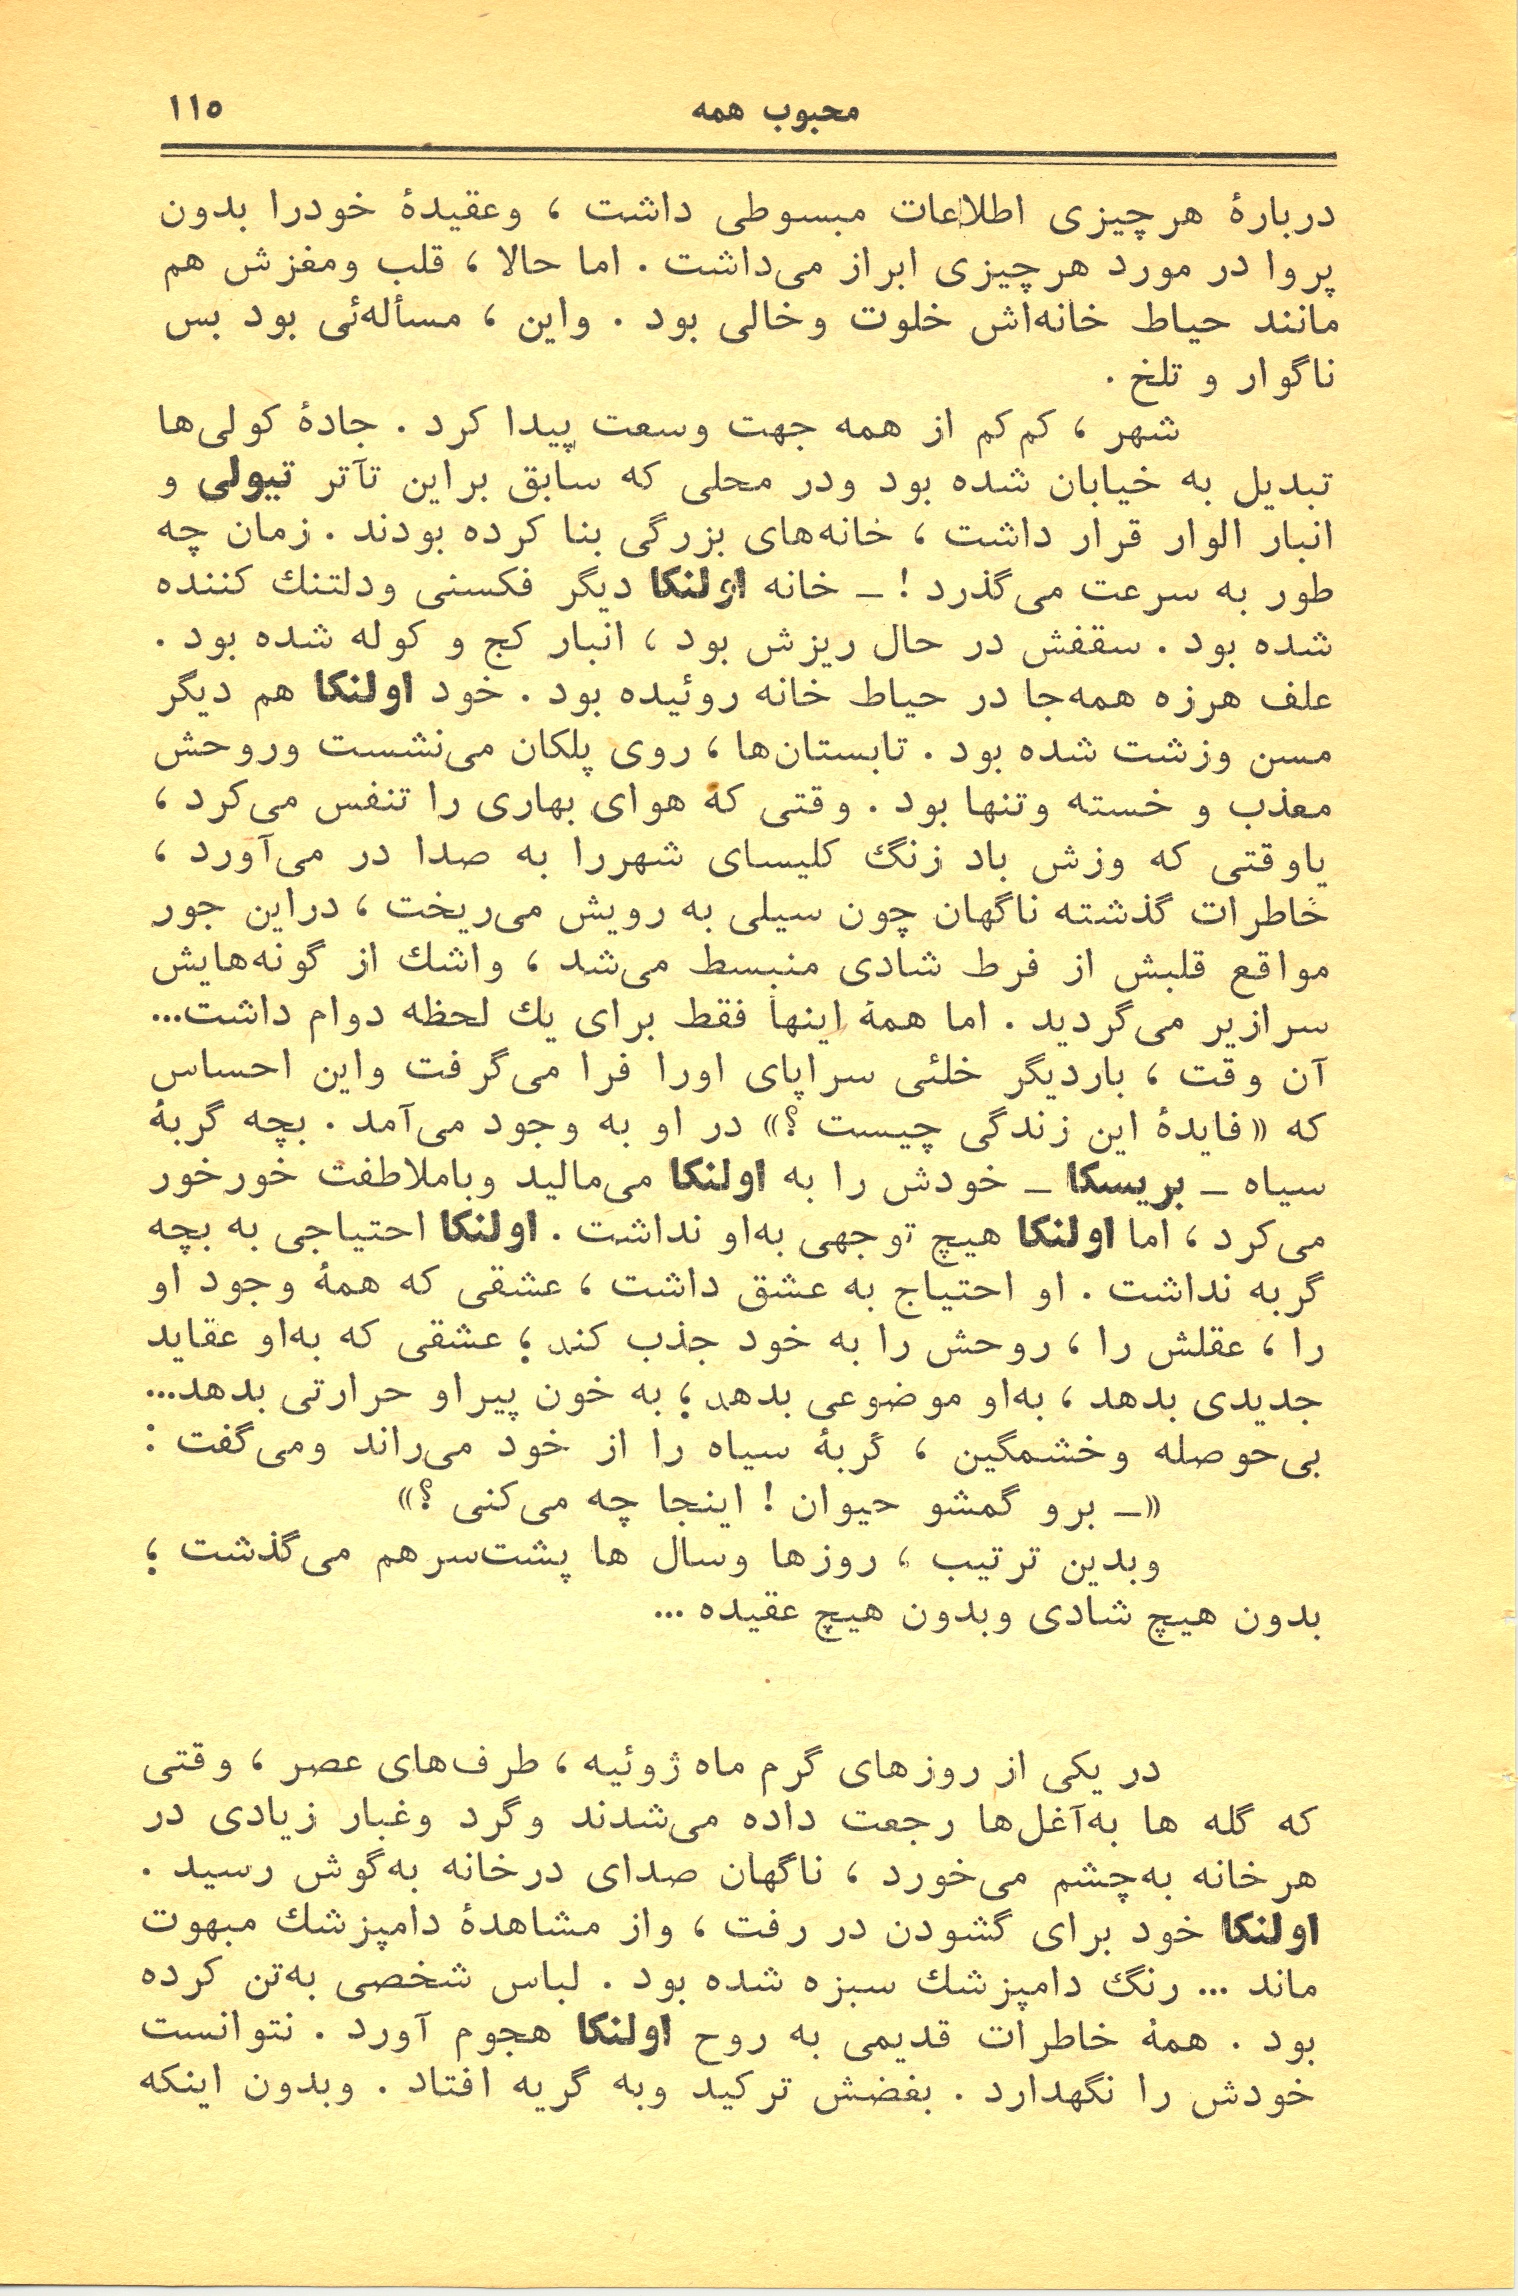 محبوب همه
۱۱۵
دربارهٔ هرچیزی اطلاعات مبسوطی داشت ، وعقیدهٔ خودرا بدون
پروا در مورد هرچیزی ابراز می‌داشت . اما حالا ، قلب ومغزش هم
مانند حیاط خانه‌اش خلوت وخالی بود . واین ، مسأله‌ئی بود بس
ناگوار و تلخ .
شهر ، کم‌کم از همه جهت وسعت پیدا کرد . جادهٔ کولی‌ها
تبدیل به خیابان شده بود ودر محلی که سابق براین تآتر تیولی و
انبار الوار قرار داشت ، خانه‌های بزرگی بنا کرده بودند . زمان چه
طور به سرعت می‌گذرد ! ـ خانه اولنکا دیگر فکسنی ودلتنك کننده
شده بود . سقفش در حال ریزش بود ، انبار کج و کوله شده بود .
علف هرزه همه‌جا در حیاط خانه روئیده بود . خود اولنکا هم دیگر
مسن وزشت شده بود . تابستان‌ها ، روی پلکان می‌نشست وروحش
معذب و خسته وتنها بود . وقتی که هوای بهاری را تنفس می‌کرد ،
یاوقتی که وزش باد زنگ کلیسای شهررا به صدا در می‌آورد ،
خاطرات گذشته ناگهان چون سیلی به رویش می‌ریخت ، دراین جور
مواقع قلبش از فرط شادی منبسط می‌شد ، واشك از گونه‌هایش
سرازیر می‌گردید . اما همهٔ اینها فقط برای یك لحظه دوام داشت...
آن وقت ، باردیگر خلئی سراپای اورا فرا می‌گرفت واین احساس
که «فایدهٔ این زندگی چیست ؟» در او به وجود می‌آمد . بچه گربهٔ
سیاه ـ بریسکا ـ خودش را به اولنکا می‌مالید وباملاطفت خورخور
می‌کرد ، اما اولنکا هیچ توجهی به‌او نداشت . اولنکا احتیاجی به بچه
گربه نداشت . او احتیاج به عشق داشت ، عشقی که همهٔ وجود او
را ، عقلش را ، روحش را به خود جذب کند ؛ عشقی که به‌او عقاید
جدیدی بدهد ، به‌او موضوعی بدهد ؛ به خون پیراو حرارتی بدهد...
بی‌حوصله وخشمگین ، گربهٔ سیاه را از خود می‌راند ومی‌گفت :
«ـ برو گمشو حیوان ! اینجا چه می‌کنی ؟»
وبدین ترتیب ، روزها وسال ها پشت‌سرهم می‌گذشت ؛
بدون هیچ شادی وبدون هیچ عقیده ...
در یکی از روزهای گرم ماه ژوئیه ، طرف‌های عصر ، وقتی
که گله ها به‌آغل‌ها رجعت داده می‌شدند وگرد وغبار زیادی در
هرخانه به‌چشم می‌خورد ، ناگهان صدای درخانه به‌گوش رسید .
اولنکا خود برای گشودن در رفت ، واز مشاهدهٔ دامپزشك مبهوت
ماند ... رنگ دامپزشك سبزه شده بود . لباس شخصی به‌تن کرده
بود . همهٔ خاطرات قدیمی به روح اولنکا هجوم آورد . نتوانست
خودش را نگهدارد . بغضش ترکید وبه گریه افتاد . وبدون اینکه